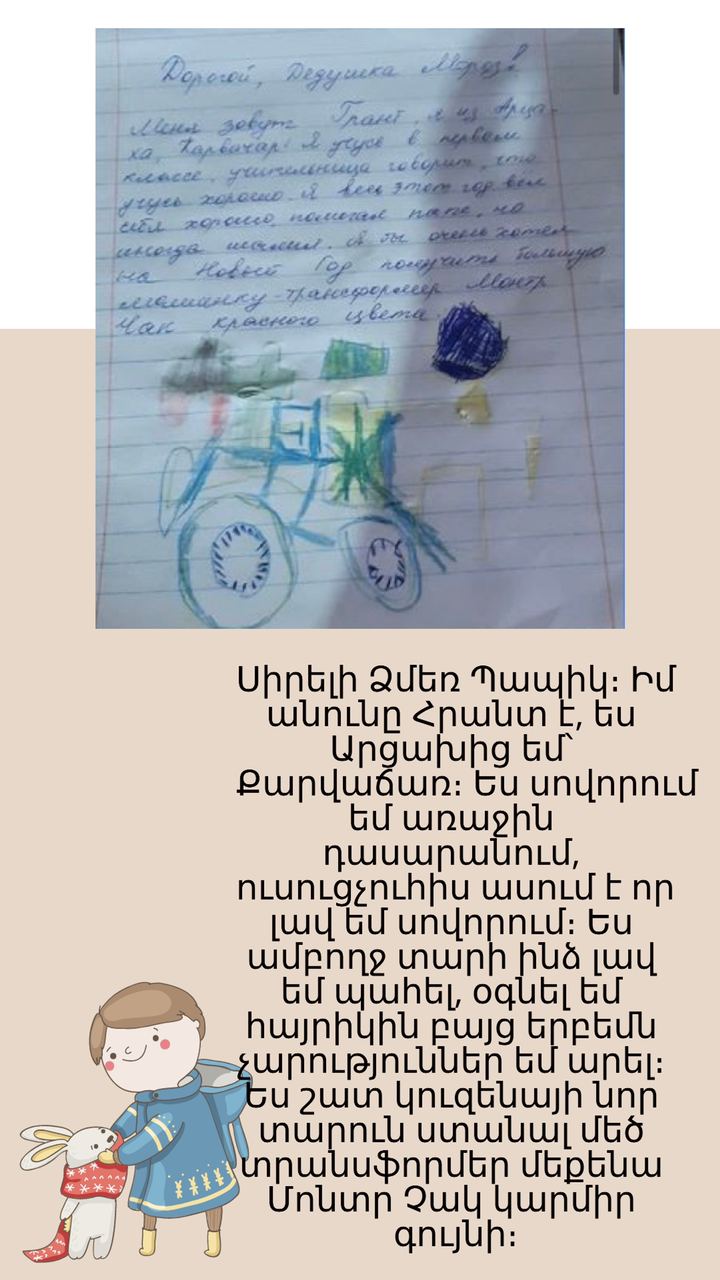 Дорогой, Дедушка Мороз!
Меня зовут Грант, я из Арца-
ха, Карвачар! Я учусь в первом
классе, учительница говорит, что
учусь хорошо. Я весь этот год вёл
себя хорошо, помогал папе, но
иногда шалил. Я бы очень хотел
на Новый Год получить большую
машинку-трансформер Монтр
Чак красного цвета.
Սիրելի Ձմեռ Պապիկ։ Իմ
անունը Հրանտ է, ես
Արցախից եմ՝
Քարվաճառ։ Ես սովորում
եմ առաջին
դասարանում,
ուսուցչուհիս ասում է որ
լավ եմ սովորում։ Ես
ամբողջ տարի ինձ լավ
եմ պահել, օգնել եմ
հայրիկին բայց երբեմն
չարություններ եմ արել։
Ես շատ կուզենայի նոր
տարուն ստանալ մեծ
տրանսֆորմեր մեքենա
Մոնտր Չակ կարմիր
գույնի։